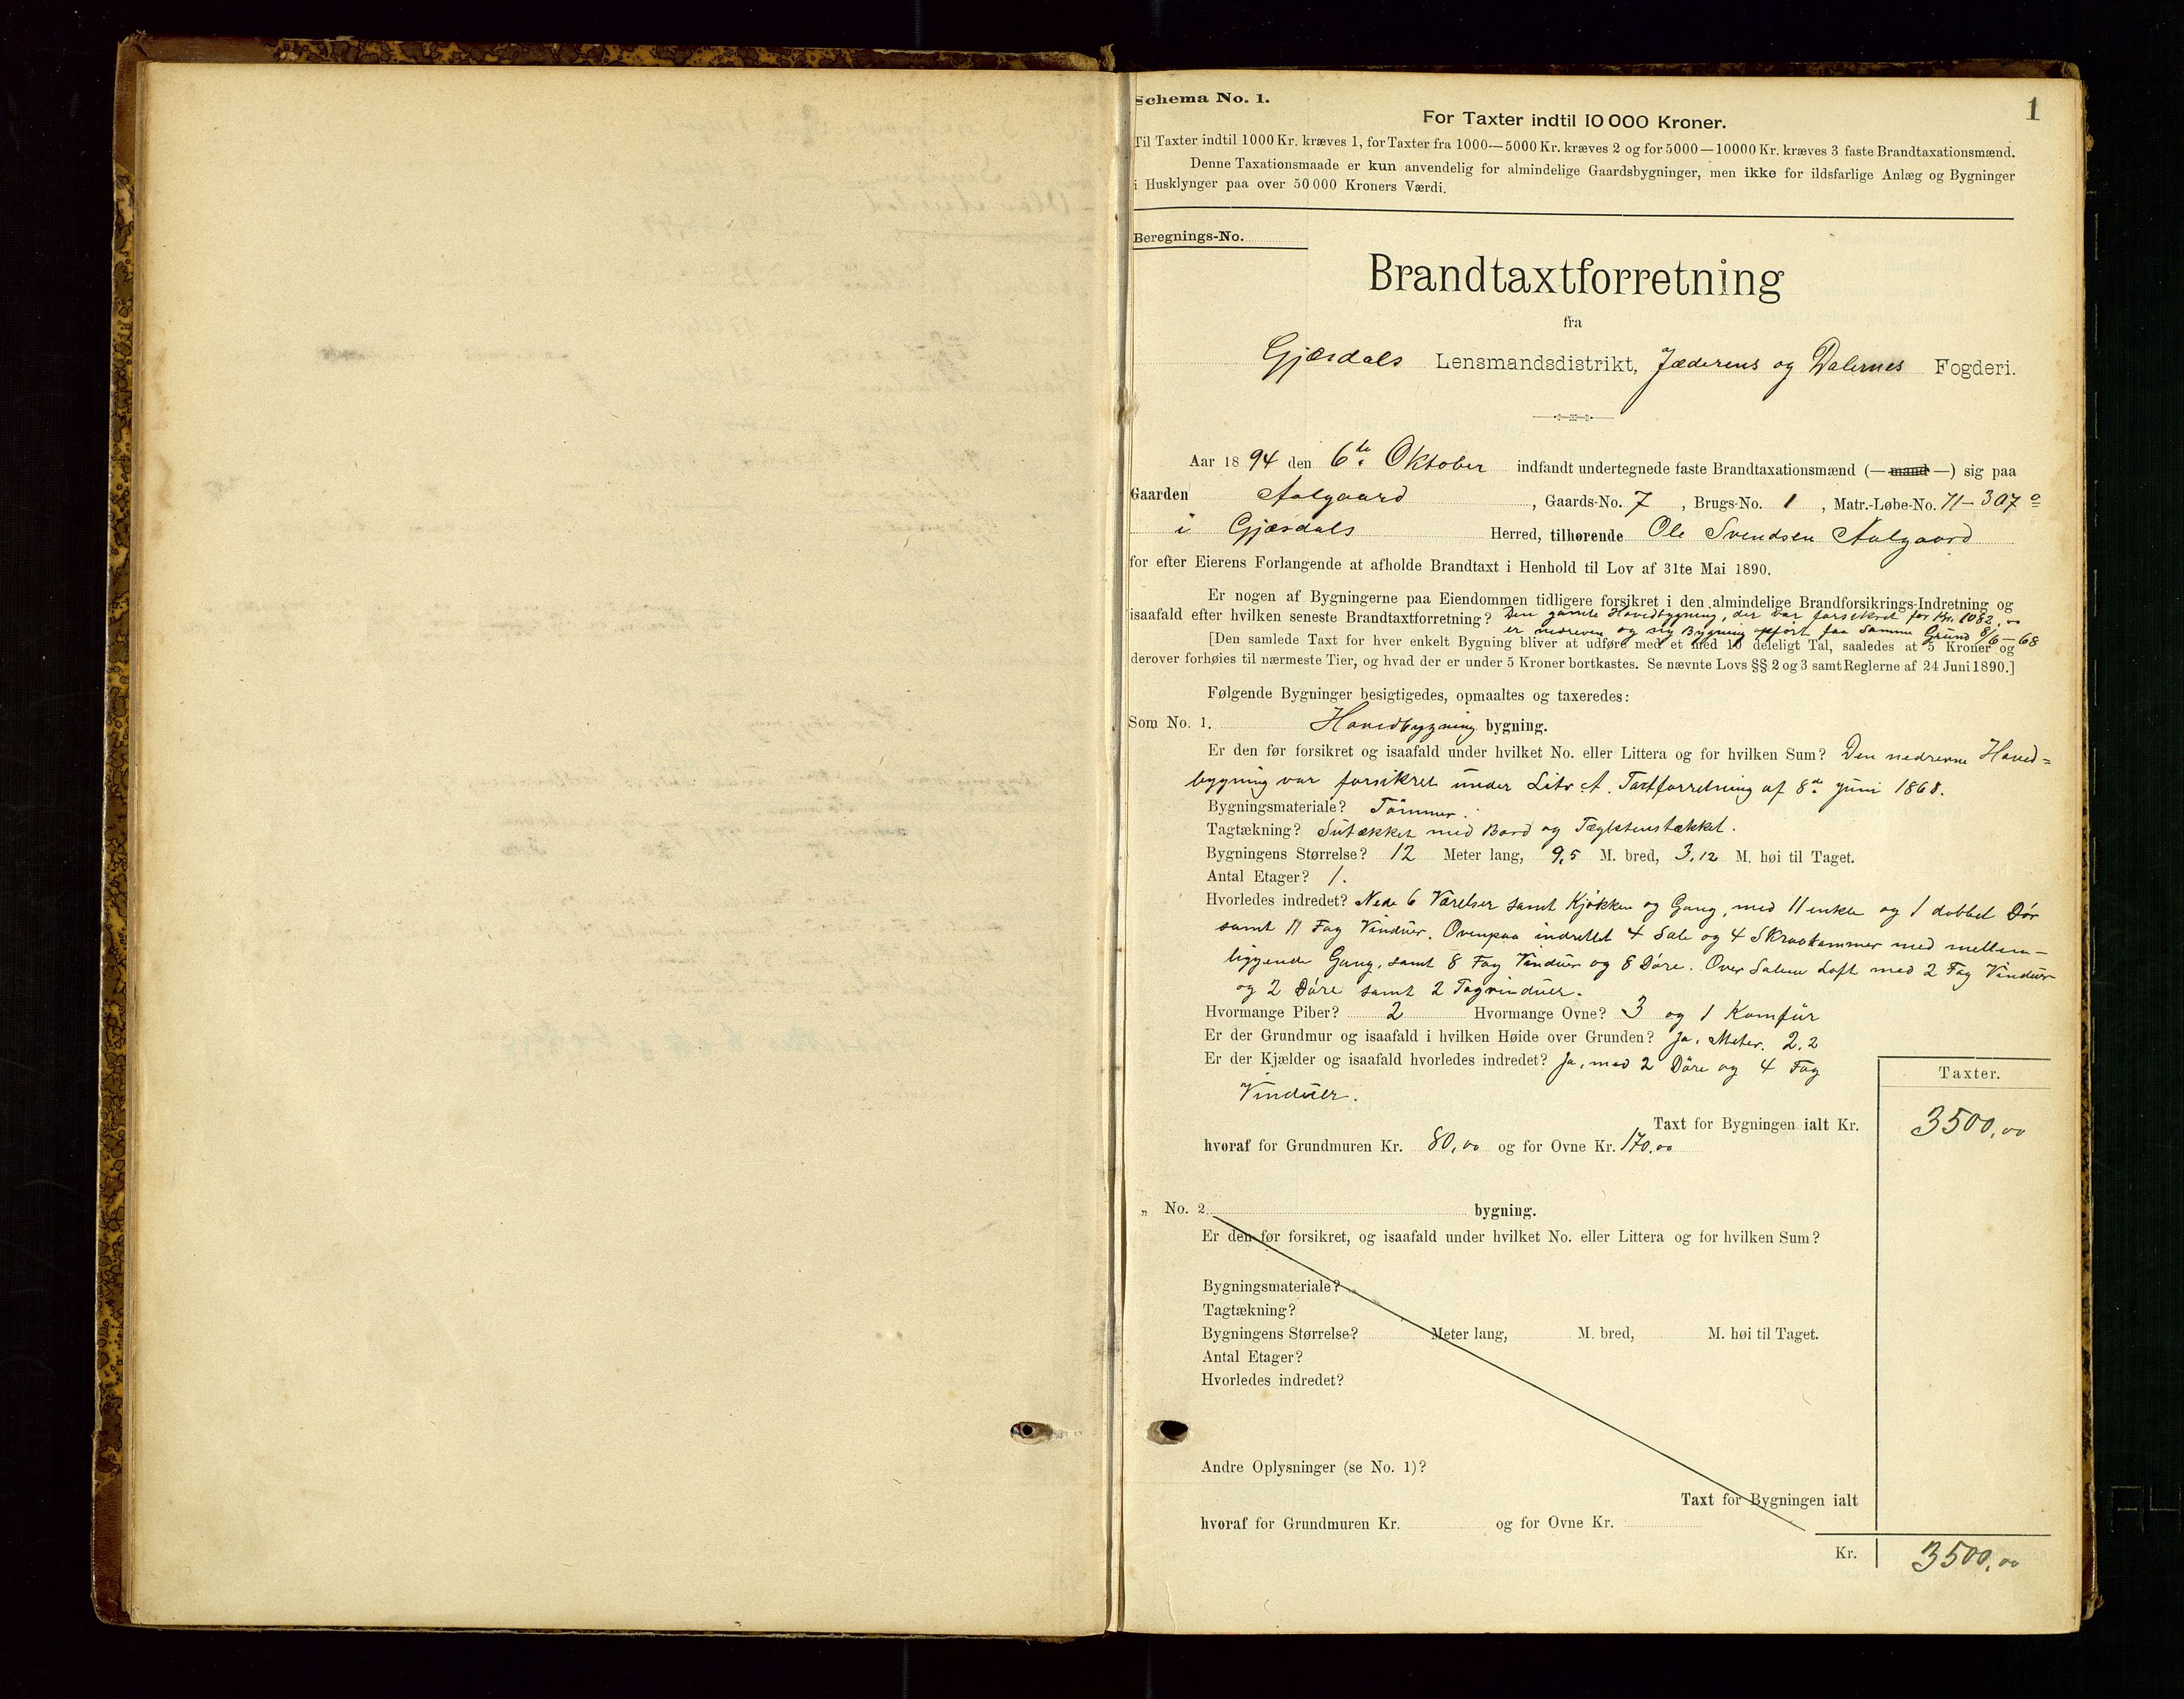 Schema No. 1.
1
For Taxter indtil 10 000 Kroner.
Til Taxter indtil 1000 Kr. kræves 1, for Taxter fra 1000—5000 Kr. kræves 2 og for 5000—10000 Kr. kræves 3 faste Brandtaxationsmænd.
Denne Taxationsmaade er kun anvendelig for almindelige Gaardsbygninger, men ikke for ildsfarlige Anlæg og Bygninger
i Husklynger paa over 50 000 Kroners Værdi.
Beregnings-No.
Brandtaxtforretning
fra
Gjæsdals Lensmandsdistrikt, Jæderens og Dalernes Fogderi.
Aar 1894 den 6te Oktober indfandt undertegnede faste Brandtaxationsmænd (— mand —) sig paa
Gaarden Aalgaard, Gaards-No. 7, Brugs-No. 1, Matr.-Løbe-No. 71—307 a
i Gjæsdals Herred, tilhørende Ole Svendsen Aalgaard
for efter Eierens Forlangende at afholde Brandtaxt i Henhold til Lov af 31te Mai 1890.
Er nogen af Bygningerne paa Eiendommen tidligere forsikret i den almindelige Brandforsikrings-Indretning og
isaafald efter hvilken seneste Brandtaxtforretning? Den gamle Hovedbygning, der var forsikret for Kr. 1082,00
er nedreven og ny Bygning opført paa samme Grund 8/6—68
[Den samlede Taxt for hver enkelt Bygning bliver at udføre med et med 10 deleligt Tal, saaledes at 5 Kroner og
derover forhøies til nærmeste Tier, og hvad der er under 5 Kroner bortkastes. Se nævnte Lovs §§ 2 og 3 samt Reglerne af 24 Juni 1890.]
Følgende Bygninger besigtigedes, opmaaltes og taxeredes:
Som No. 1. Hovedbygning bygning.
Er den før forsikret og isaafald under hvilket No. eller Littera og for hvilken Sum? Den nedrevne Hoved=
bygning var forsikret under Litr A. Taxtforretning af 8de juni 1868.
Bygningsmateriale? Tømmer.
Tagtækning? Sutækket med Bord og Teglstenstækket.
Bygningens Størrelse? 12 Meter lang, 9,5 M. bred, 3,12 M. høi til Taget.
Antal Etager? 1.
Hvorledes indredet? Nede 6 Værelser samt Kjøkken og Gang, med 11 enkle og 1 dobbel Dør
samt 11 Fag Vinduer. Ovenpaa indrettet 4 Sale og 4 Skraakammer med mellem—
liggende Gang, samt 8 Fag Vinduer og 8 Døre. Over Salene Loft med 2 Fag Vinduer
og 2 Døre samt 2 Tagvinduer.
Hvormange Piber? 2 Hvormange Ovne? 3 og 1 Komfür
Er der Grundmur og isaafald i hvilken Høide over Grunden? Ja, Meter. 2,2
Er der Kjælder og isaafald hvorledes indredet? Ja, med 2 Døre og 4 Fag
Vinduer.
Taxter.
Taxt for Bygningen ialt Kr. 3500,00
hvoraf for Grundmuren Kr. 80,00 og for Ovne Kr. 170,00
„ No. 2. bygning.
Er den før forsikret, og isaafald under hvilket No. eller Littera og for hvilken Sum?
Bygningsmateriale?
Tagtækning?
Bygningens Størrelse? Meter lang, M. bred, M. høi til Taget.
Antal Etager?
Hvorledes indredet?
Andre Oplysninger (se No. 1)?
Taxt for Bygningen ialt
hvoraf for Grundmuren Kr. og for Ovne Kr.
Kr. 3500,00